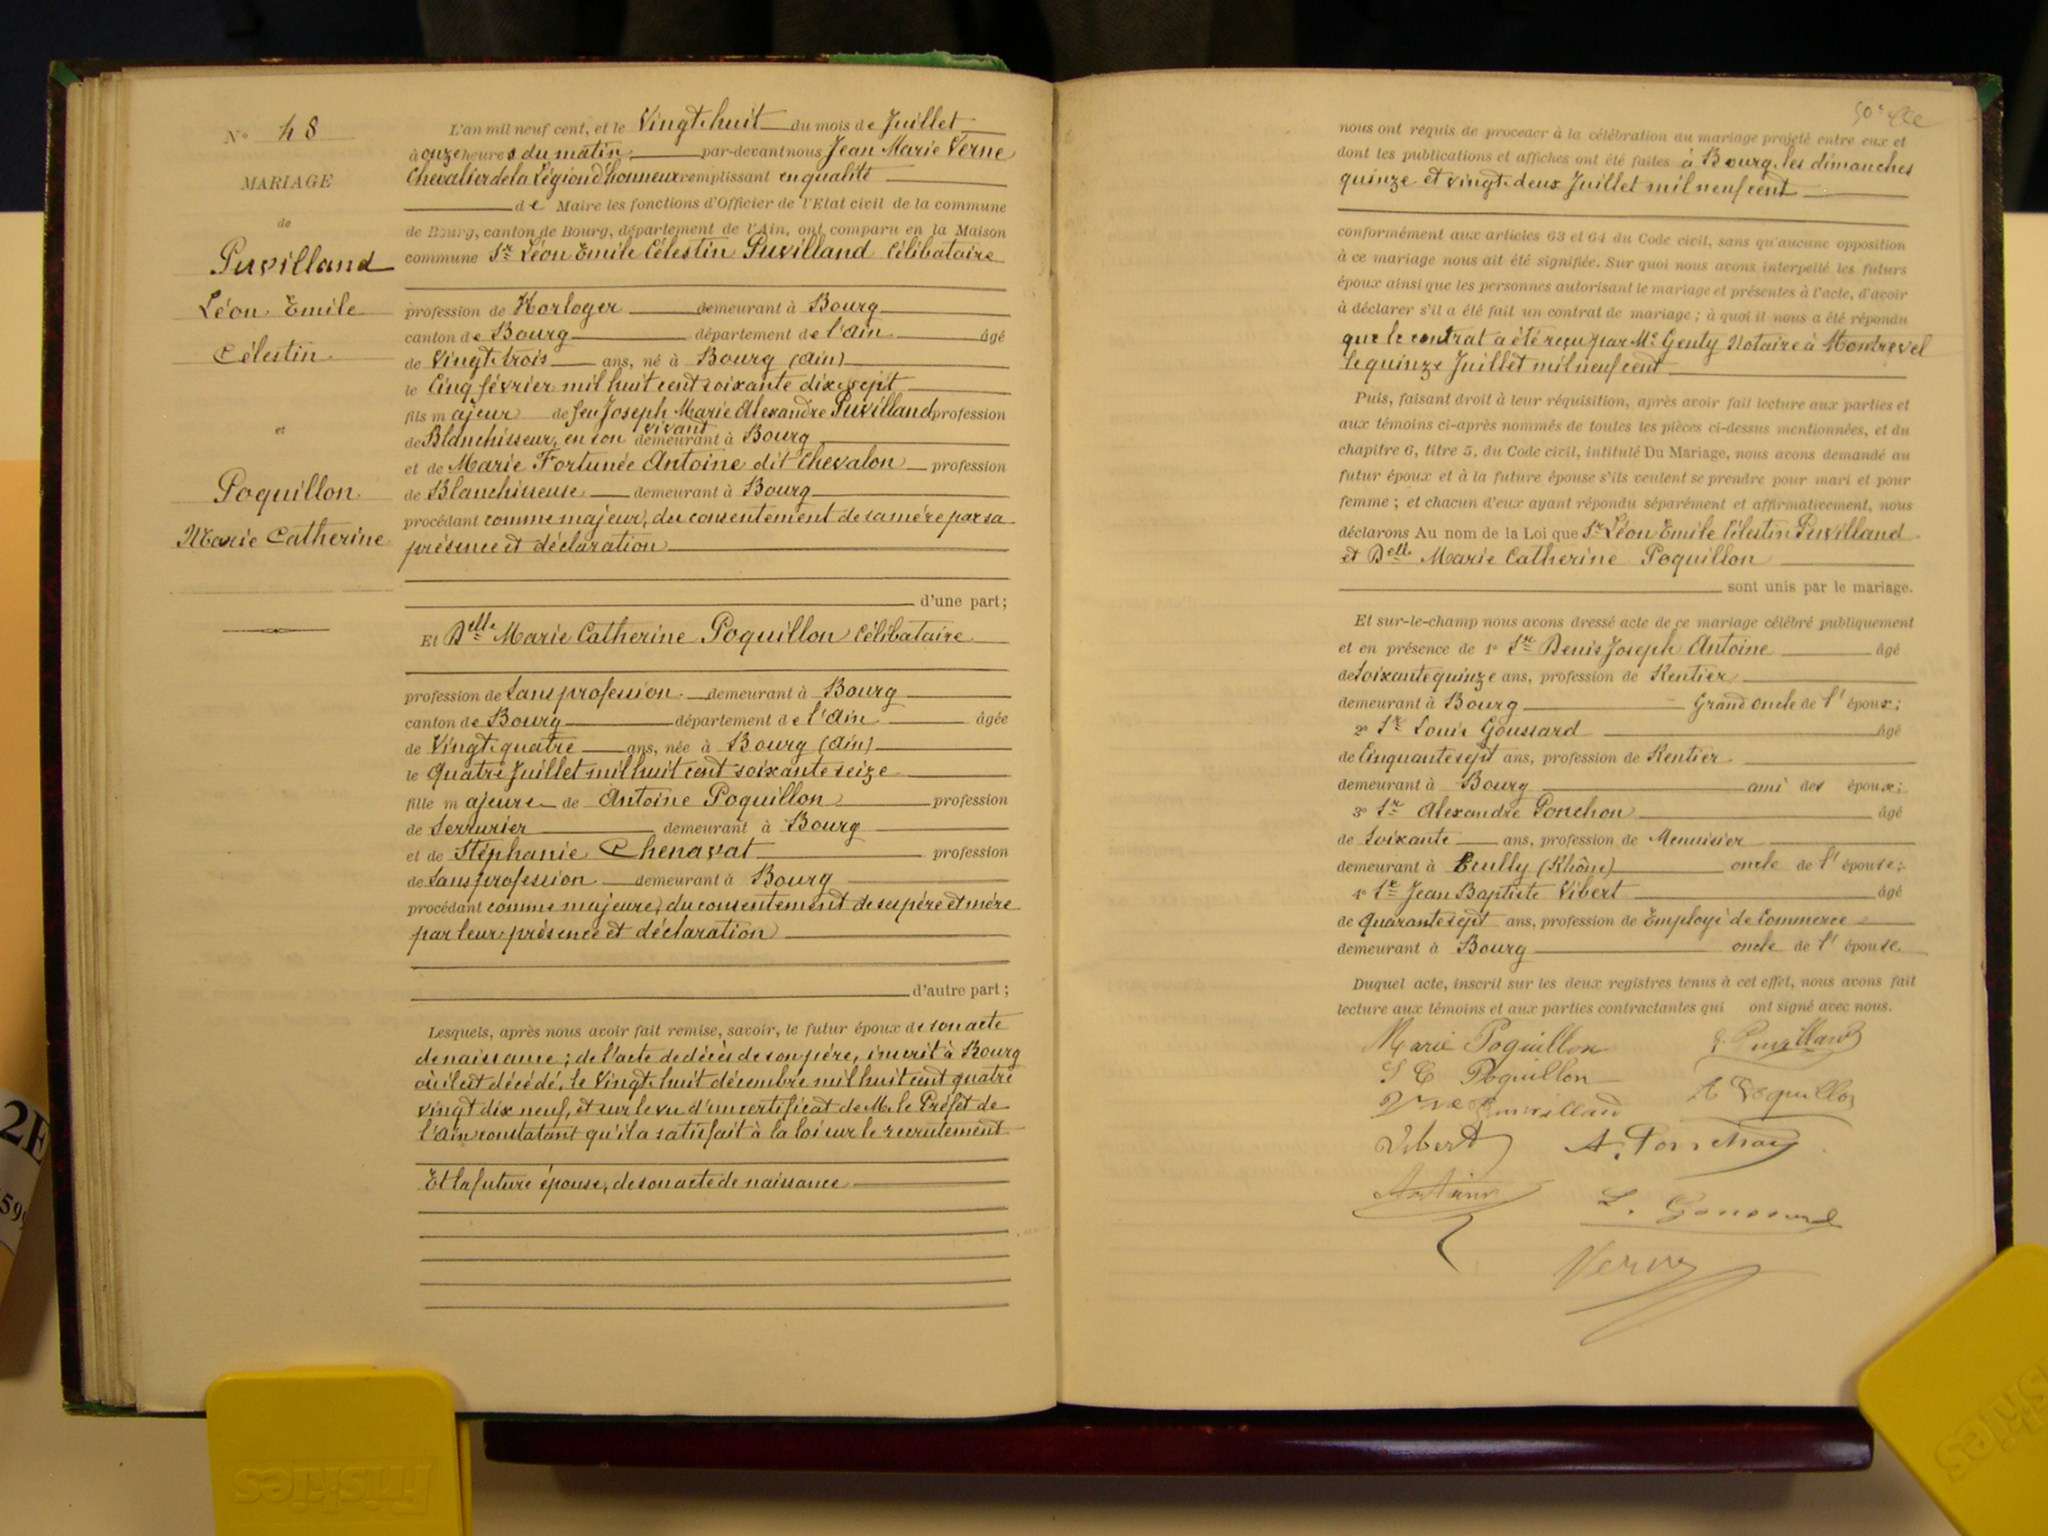 N° 48
MARIAGE
de
Puvilland
Léon Emile
Célestin
et
Poquillon
Marie Catherine
L'an mil neuf cent, et le Vingt huit du mois de Juillet
à onze heures du matin par-devant nous Jean Marie Verne
Chevalier de la Légion d'honneur remplissant en qualité
de Maire les fonctions d'Officier de l'Etat civil de la commune
de Bourg, canton de Bourg, département de l'Ain, ont comparu en la Maison
commune Sr Léon Emile Célestin Puvilland Célibataire
profession de Horloger demeurant à Bourg
canton de Bourg département de l'Ain âgé
de Vingt trois ans, né à Bourg (Ain)
le Cinq février mil huit cent soixante dix sept
fils majeur de feu Joseph Marie Alexandre Puvilland profession
de Blanchisseur, en son vivant demeurant à Bourg
et de Marie Fortunée Antoine dit Chevalon profession
de Blanchisseuse demeurant à Bourg
procédant comme majeur, du consentement de sa mère par sa
présence et déclaration
d'une part;
Et Delle Marie Catherine Poquillon Célibataire
profession de Sans profession demeurant à Bourg
canton de Bourg département de l'Ain âgée
de Vingt quatre ans, née à Bourg (Ain)
le Quatre Juillet mil huit cent soixante seize
fille majeure de Antoine Poquillon profession
de Serrurier demeurant à Bourg
et de Stéphanie Chenavat profession
de Sans profession demeurant à Bourg
procédant comme majeure, du consentement de ses père et mère
par leur présence et déclaration
d'autre part;
Lesquels, après nous avoir fait remise, savoir, le futur époux de son acte
de naissance; de l'acte de décès de son père, inscrit à Bourg
où il est décédé, le Vingt huit décembre mil huit cent quatre
vingt dix neuf, et sur le vu d'un certificat de M. le Préfet de
l'Ain constatant qu'il a satisfait à la loi sur le recrutement
Et la future épouse, de son acte de naissance
nous ont requis de procéder à la célébration du mariage projeté entre eux et
dont les publications et affiches ont été faites à Bourg, les dimanches
quinze et vingt deux Juillet mil neuf cent
conformément aux articles 63 et 64 du Code civil, sans qu'aucune opposition
à ce mariage nous ait été signifiée. Sur quoi nous avons interpellé les futurs
époux ainsi que les personnes autorisant le mariage et présentes à l'acte, d'avoir
à déclarer s'il a été fait un contrat de mariage; à quoi il nous a été répondu
que le contrat a été reçu par Me Genty Notaire à Montrevel
le quinze Juillet mil neuf cent
Puis, faisant droit à leur réquisition, après avoir fait lecture aux parties et
aux témoins ci-après nommés de toutes les pièces ci-dessus mentionnées, et du
chapitre 6, titre 5, du Code civil, intitulé Du Mariage, nous avons demandé au
futur époux et à la future épouse s'ils veulent se prendre pour mari et pour
femme; et chacun d'eux ayant répondu séparément et affirmativement, nous
déclarons Au nom de la Loi que Sr Léon Emile Célestin Puvilland
et Delle Marie Catherine Poquillon
sont unis par le mariage.
Et sur-le-champ nous avons dressé acte de ce mariage célébré publiquement
et en présence de 1° Sr Denis Joseph Antoine âgé
de Soixante quinze ans, profession de Rentier
demeurant à Bourg Grand oncle de l'époux;
2° Sr Louis Goussard âgé
de Cinquante sept ans, profession de Rentier
demeurant à Bourg ami des époux;
3° Sr Alexandre Ponchon âgé
de Soixante ans, profession de Menuisier
demeurant à Ecully (Rhône) oncle de l'épouse;
4° Sr Jean Baptiste Vibert âgé
de Quarante sept ans, profession de Employé de Commerce
demeurant à Bourg oncle de l'épouse
Duquel acte, inscrit sur les deux registres tenus à cet effet, nous avons fait
lecture aux témoins et aux parties contractantes qui ont signé avec nous.
Marie Poquillon
L. Puvilland
S C Poquillon
A Poquillon
Vve Puvilland
Vibert
A. Ponchon
Antoine
L. Goussard
Verne
2E
friskies